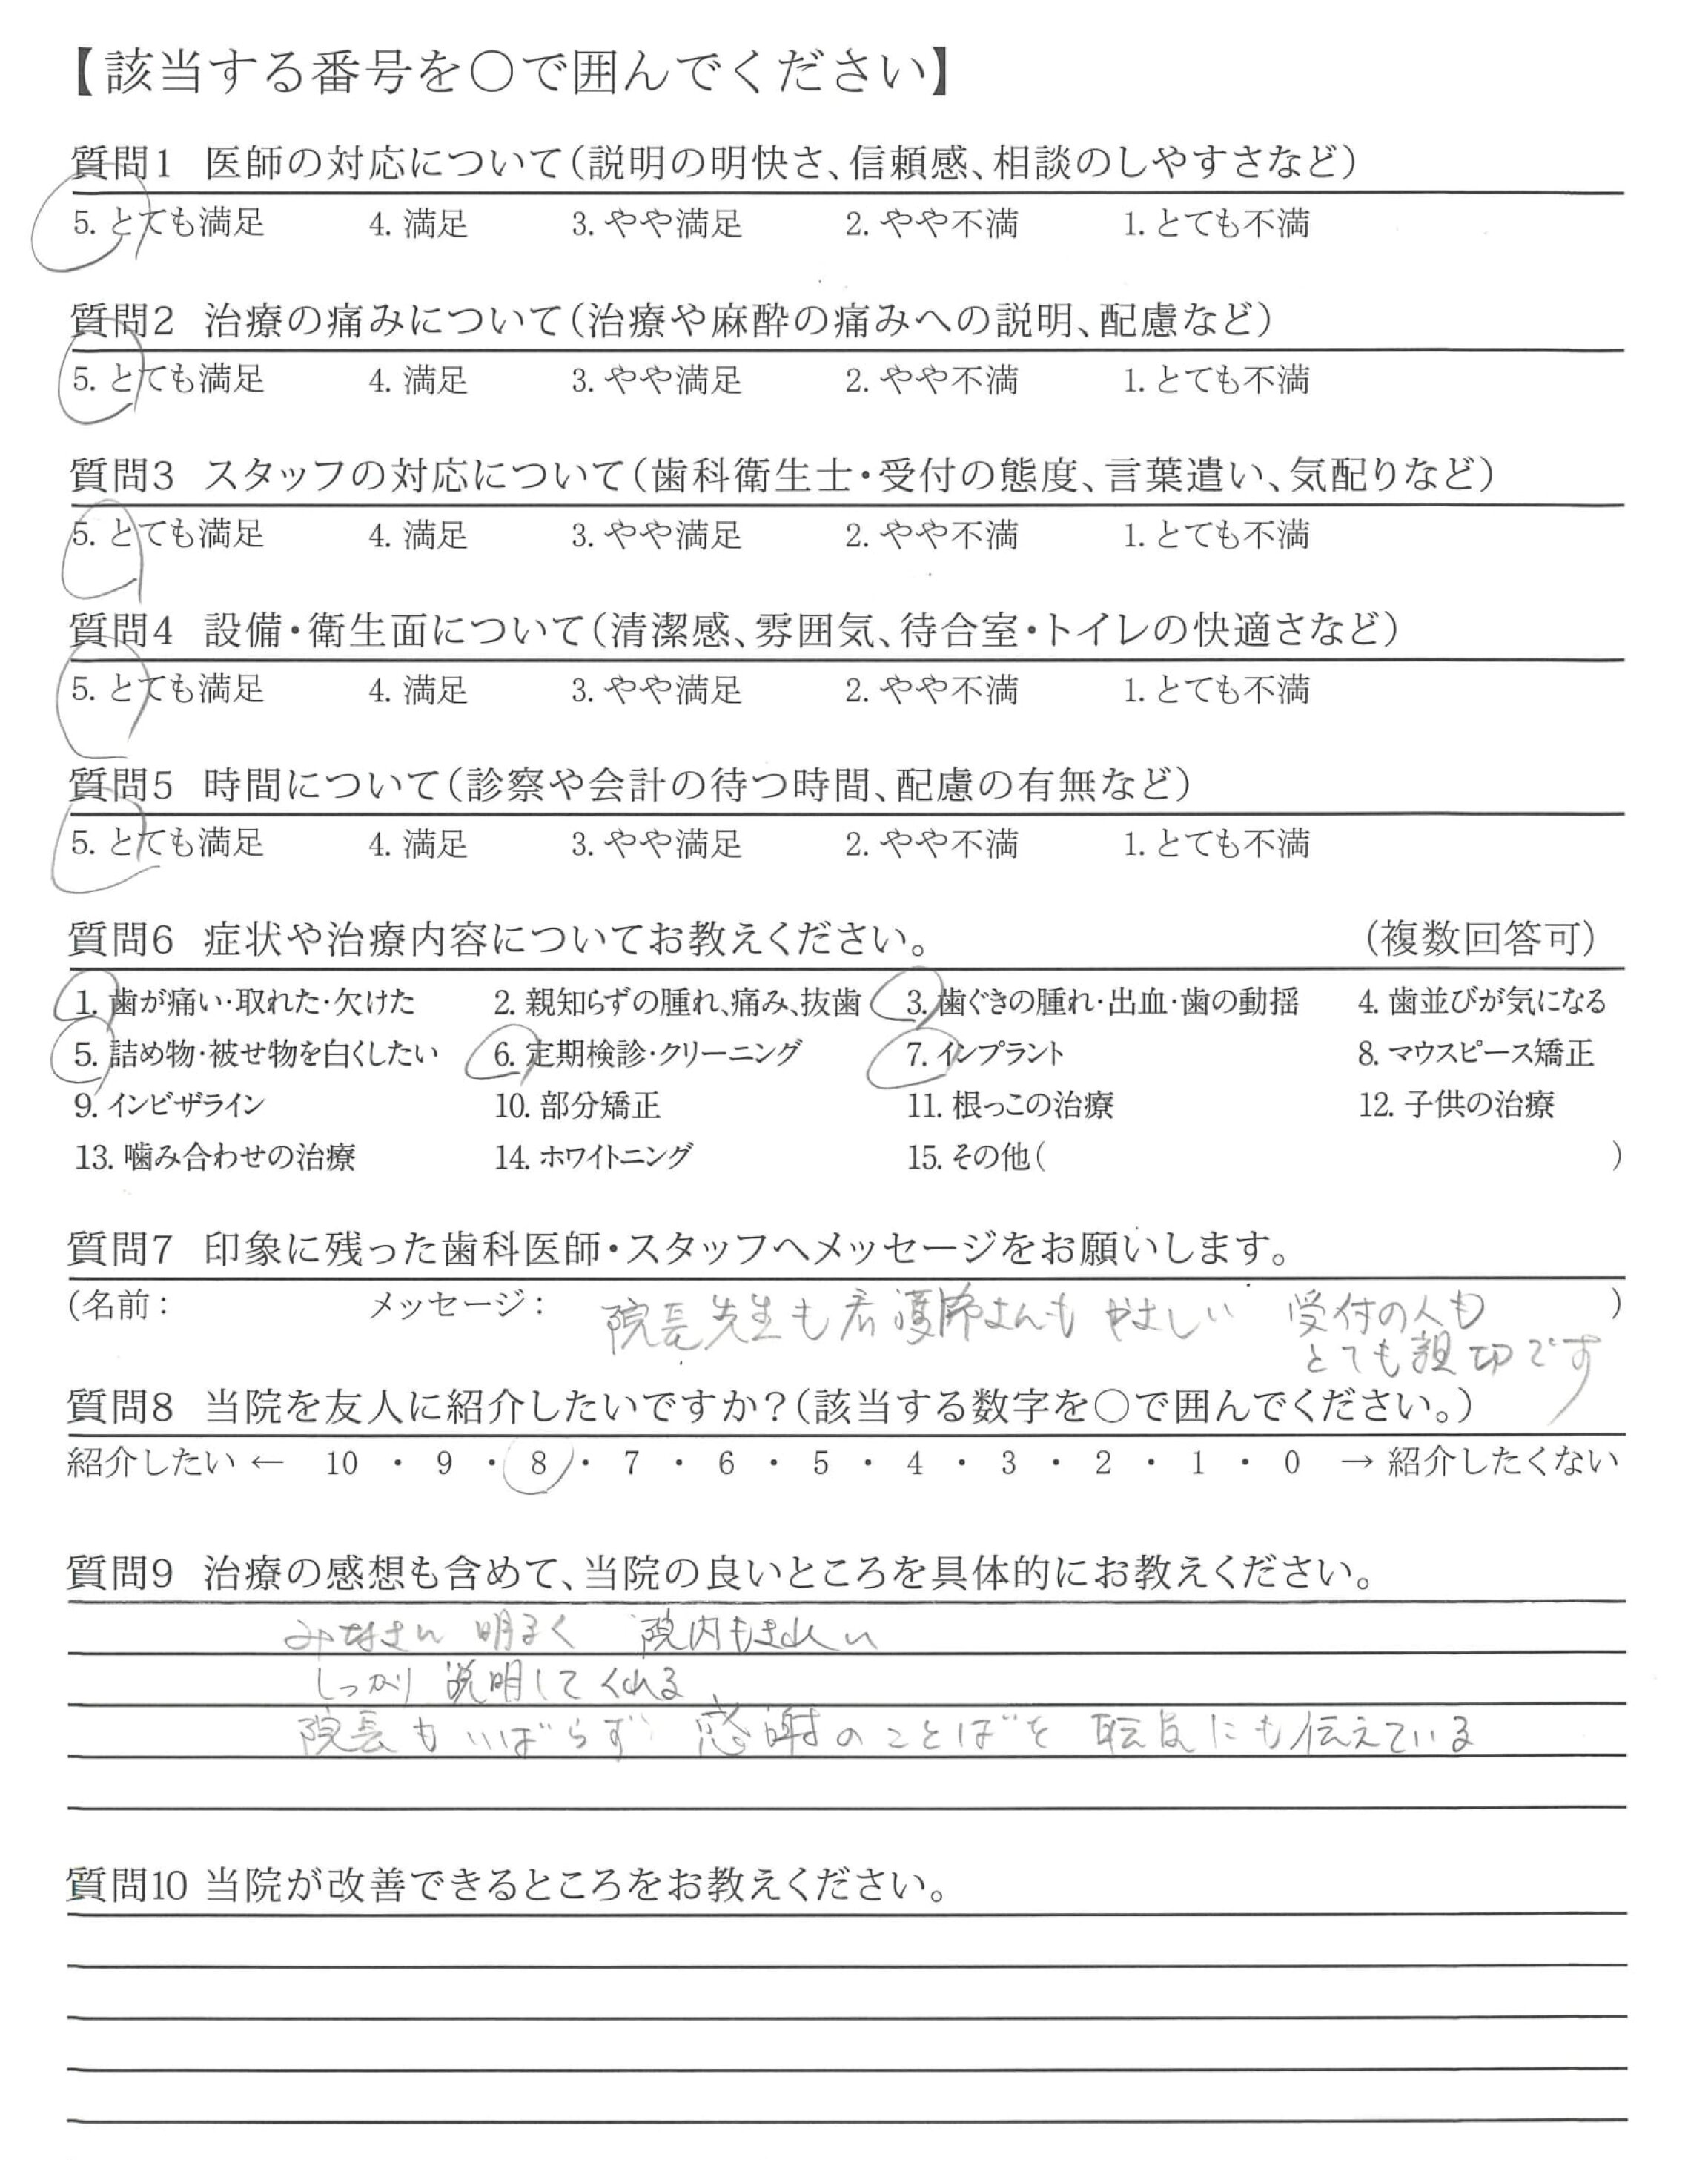 【該当する番号を〇で囲んでください】
質問1 医師の対応について(説明の明快さ、信頼感、相談のしやすさなど)
5. とても満足 4. 満足 3. やや満足 2. やや不満 1. とても不満
質問2 治療の痛みについて(治療や麻酔の痛みへの説明、配慮など)
5. とても満足 4. 満足 3. やや満足 2. やや不満 1. とても不満
質問3 スタッフの対応について(歯科衛生士・受付の態度、言葉遣い、気配りなど)
5. とても満足 4. 満足 3. やや満足 2. やや不満 1. とても不満
質問4 設備・衛生面について(清潔感、雰囲気、待合室・トイレの快適さなど)
5. とても満足 4. 満足 3. やや満足 2. やや不満 1. とても不満
質問5 時間について(診察や会計の待つ時間、配慮の有無など)
5. とても満足 4. 満足 3. やや満足 2. やや不満 1. とても不満
質問6 症状や治療内容についてお教えください。 (複数回答可)
1. 歯が痛い・取れた・欠けた 2. 親知らずの腫れ、痛み、抜歯 3. 歯ぐきの腫れ・出血・歯の動揺 4. 歯並びが気になる
5. 詰め物・被せ物を白くしたい 6. 定期検診・クリーニング 7. インプラント 8. マウスピース矯正
9. インビザライン 10. 部分矯正 11. 根っこの治療 12. 子供の治療
13. 噛み合わせの治療 14. ホワイトニング 15. その他( )
質問7 印象に残った歯科医師・スタッフへメッセージをお願いします。
(名前: メッセージ: 院長先生も看護師さんもやさしい 受付の人も )
とても親切です
質問8 当院を友人に紹介したいですか?(該当する数字を〇で囲んでください。)
紹介したい ← 10 ・ 9 ・ 8 ・ 7 ・ 6 ・ 5 ・ 4 ・ 3 ・ 2 ・ 1 ・ 0 → 紹介したくない
質問9 治療の感想も含めて、当院の良いところを具体的にお教えください。
みなさん 明るく 院内もきれい
しっかり 説明してくれる
院長もいばらず 感謝のことばを 職員にも伝えている
質問10 当院が改善できるところをお教えください。